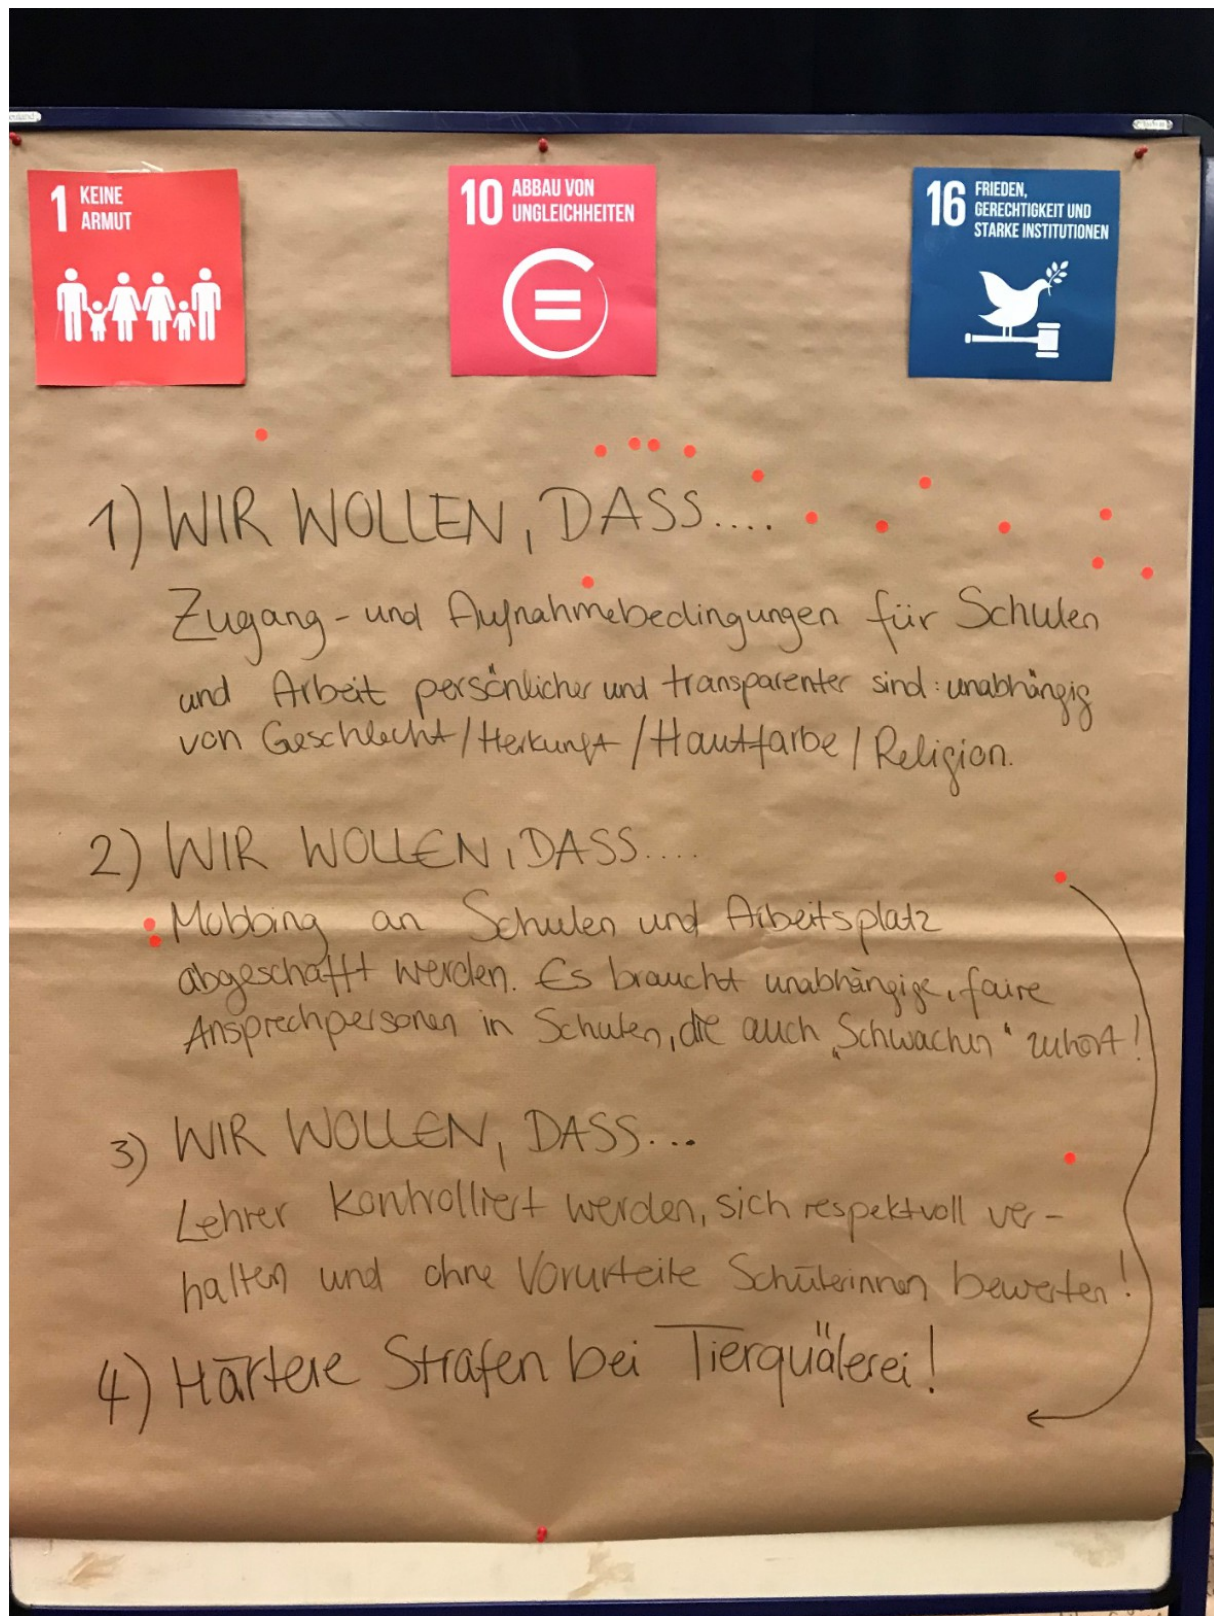 1 KEINE
ARMUT
10 ABBAU VON
UNGLEICHHEITEN
16 FRIEDEN,
GERECHTIGKEIT UND
STARKE INSTITUTIONEN
1) WIR WOLLEN, DASS....
Zugang- und Aufnahmebedingungen für Schulen
und Arbeit persönlicher und transparenter sind: unabhängig
von Geschlecht/Herkunft/Hautfarbe/Religion.
2) WIR WOLLEN, DASS....
Mobbing an Schulen und Arbeitsplatz
abgeschafft werden. Es braucht unabhängige, faire
Ansprechpersonen in Schulen, die auch „Schwachen“ zuhört!
3) WIR WOLLEN, DASS...
Lehrer kontrolliert werden, sich respektvoll ver-
halten und ohne Vorurteile Schülerinnen bewerten!
4) Härtere Strafen bei Tierquälerei!